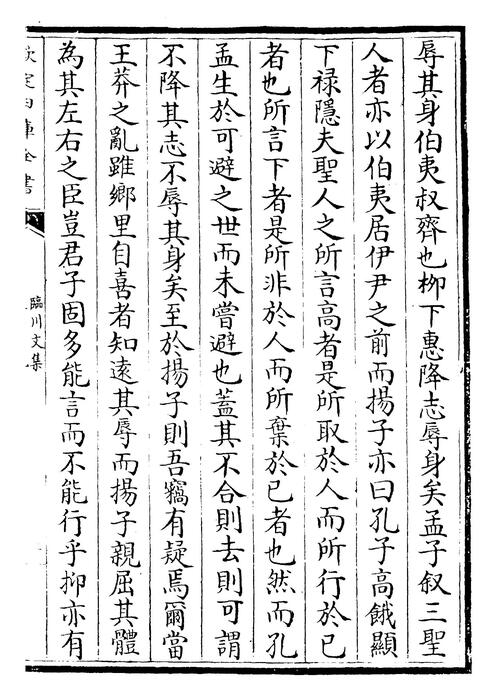 辱其身伯夷叔齊也栁下惠降志辱身矣孟子叙三聖
人者亦以伯夷居伊尹之前而揚子亦曰孔子高餓顯
下禄隱夫聖人之所言高者是所取於人而所行於已
者也所言下者是所非於人而所棄於已者也然而孔
孟生於可避之世而未嘗避也蓋其不合則去則可謂
不降其志不辱其身矣至於揚子則吾竊有疑焉爾當
王莽之亂雖鄉里自喜者知逺其辱而揚子親屈其體
為其左右之臣豈君子固多能言而不能行乎抑亦有
欽定四庫全書
臨川文集